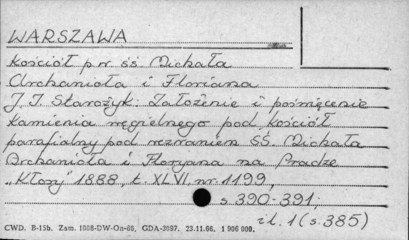 WARSZAWA
Kościół p.w. śś. Michała
Archanioła i Floriana
J. J. Starożyk: Założenie i poświęcenie
kamienia węgielnego pod kościół
parafialny pod wezwaniem ŚŚ. Michała
Archanioła i Floryana na Pradze
„Kłosy" 1888, t. XLVI, nr. 1199,
s. 390-391.
il. 1 (s. 385)
CWD. B-15b. Zam. 1008-DW-On-66. GDA-3097. 23.11.66. 1 906 000.